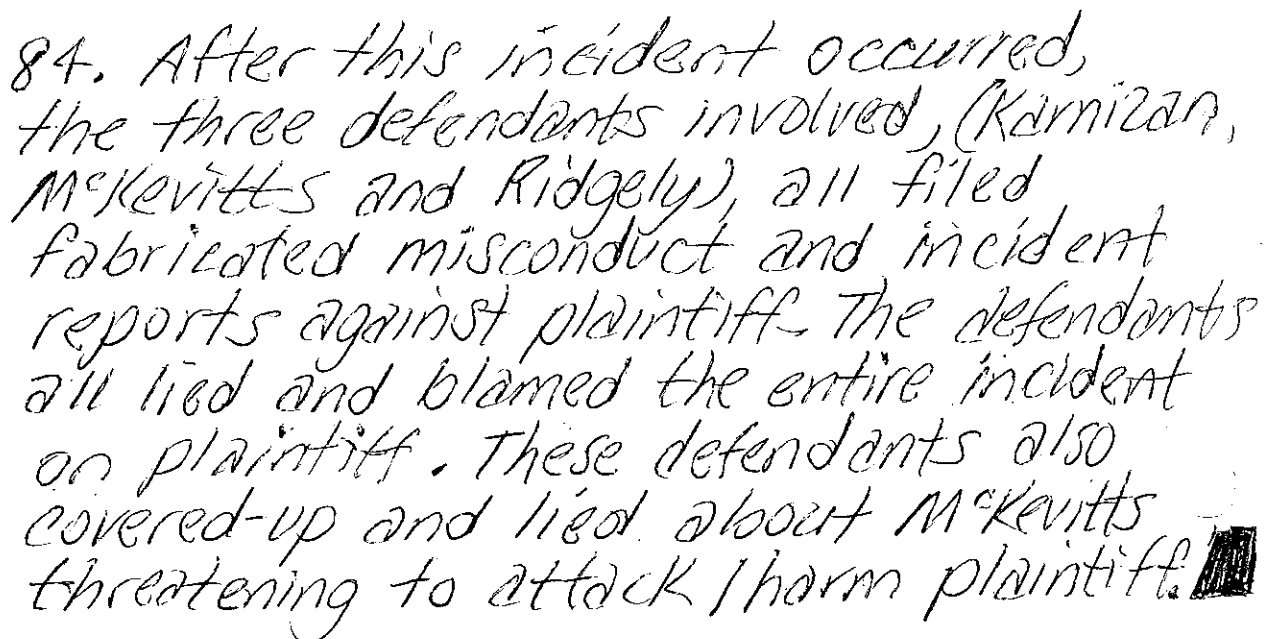 84. After this incident occurred,
the three defendants involved, (Karnizan,
McKevitts and Ridgely), all filed
fabricated misconduct and incident
reports against plaintiff. The defendants
all lied and blamed the entire incident
on plaintiff. These defendants also
covered-up and lied about McKevitts
threatening to attack/harm plaintiff.